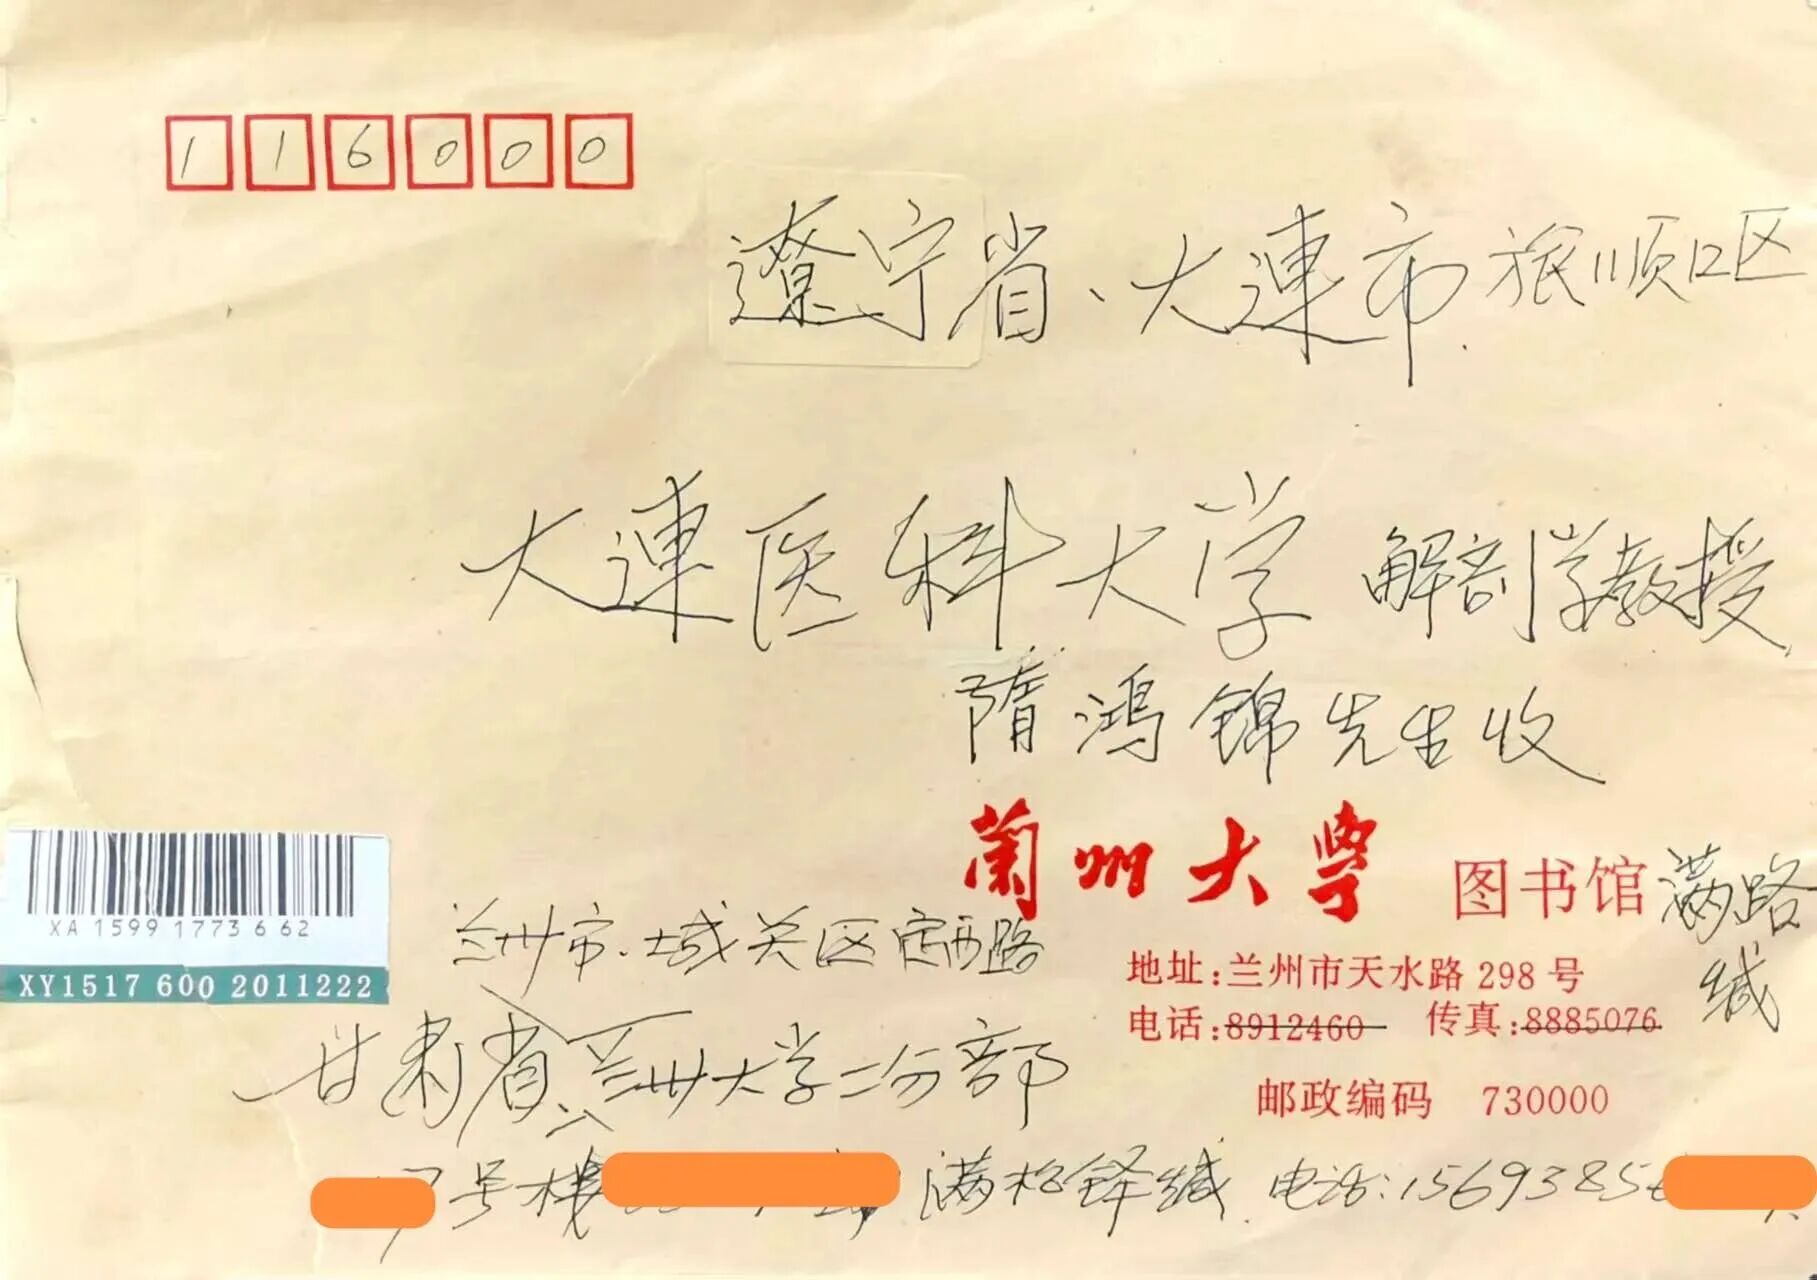 116000
遼宁省、大連市旅顺口区
大連医科大学 解剖学教授
隋鸿锦先生收
蘭州大學 图书馆 满路缄
地址:兰州市天水路 298 号
电话:8912460 传真:8885076
邮政编码 730000
XA 1599 1773 6 62
XY1517 600 2011222
兰州市.城关区定西路
甘肃省兰州大学二分部
号楼 满 铎缄 电话:1569385